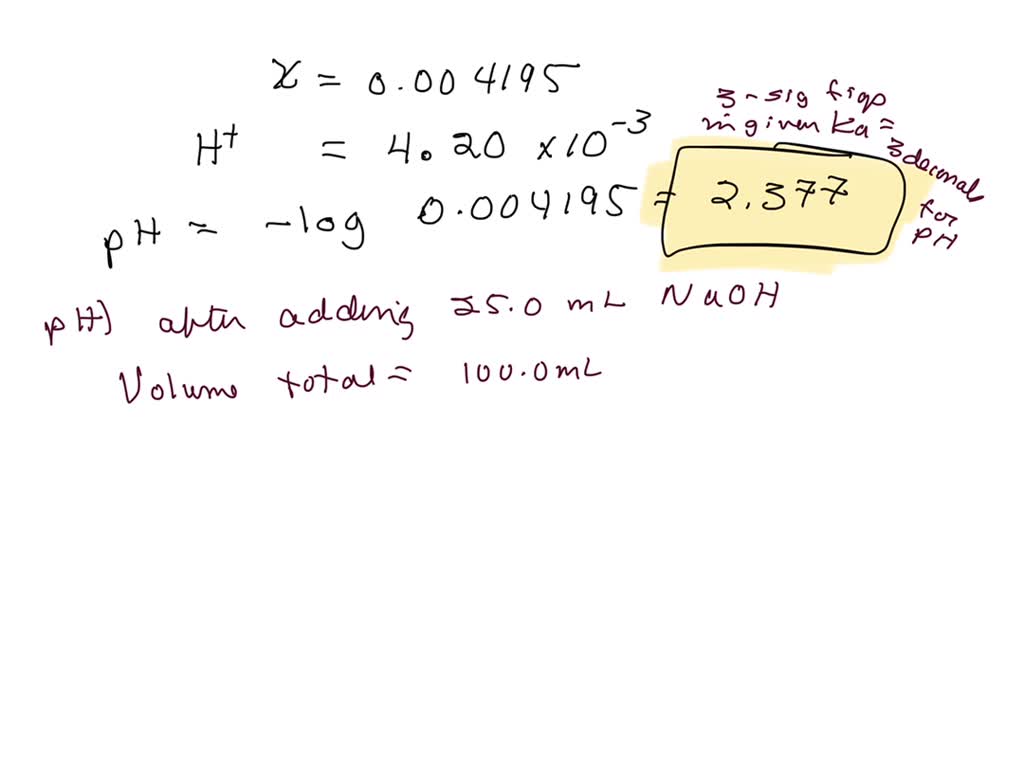 x = 0.004195
H⁺ = 4.20 × 10⁻³
pH = -log 0.004195 = 2.377
3-sig figs
in given Ka =
3 decimals
for
pH
pH) after adding 25.0 mL NaOH
Volume total = 100.0 mL